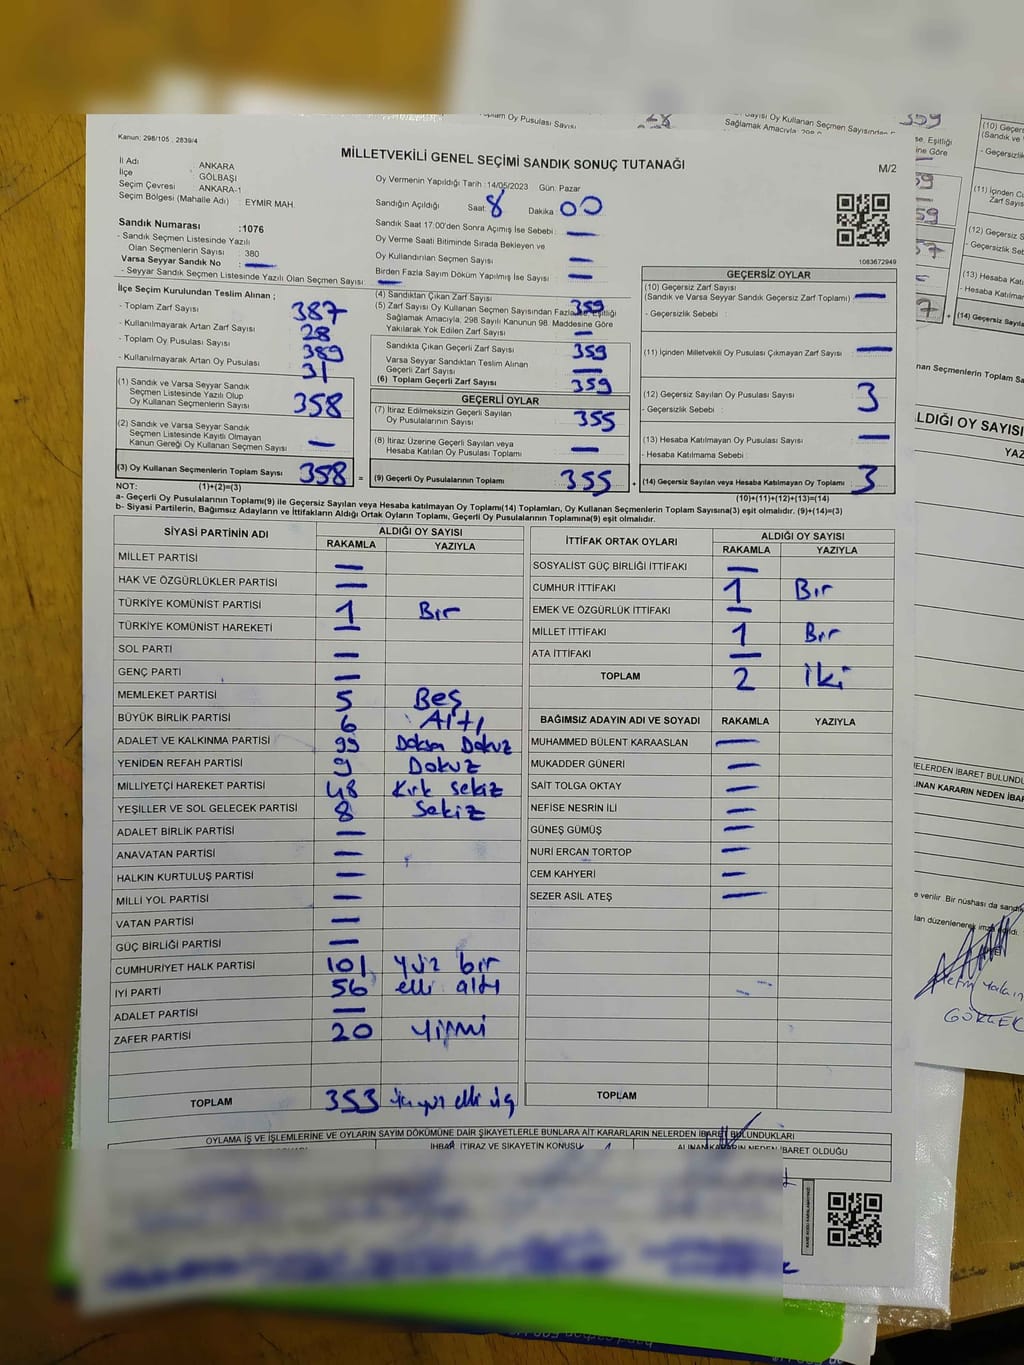 Kanun: 298/105 : 2839/4
MİLLETVEKİLİ GENEL SEÇİMİ SANDIK SONUÇ TUTANAĞI
M/2
İl Adı : ANKARA
İlçe : GÖLBAŞI
Seçim Çevresi : ANKARA-1
Seçim Bölgesi (Mahalle Adı) : EYMİR MAH.
Oy Vermenin Yapıldığı Tarih :14/05/2023 Gün: Pazar
Sandığın Açıldığı Saat: 8 Dakika : 00
Sandık Saat 17:00'den Sonra Açımış İse Sebebi : —
Oy Verme Saati Bitiminde Sırada Bekleyen ve
Oy Kullandırılan Seçmen Sayısı —
Birden Fazla Sayım Döküm Yapılmış İse Sayısı : —
1083672949
Sandık Numarası :1076
- Sandık Seçmen Listesinde Yazılı
Olan Seçmenlerin Sayısı : 380
Varsa Seyyar Sandık No : —
- Seyyar Sandık Seçmen Listesinde Yazılı Olan Seçmen Sayısı: —
İlçe Seçim Kurulundan Teslim Alınan ;
- Toplam Zarf Sayısı 387
- Kullanılmayarak Artan Zarf Sayısı 28
- Toplam Oy Pusulası Sayısı 389
- Kullanılmayarak Artan Oy Pusulası 31
(1) Sandık ve Varsa Seyyar Sandık
Seçmen Listesinde Yazılı Olup
Oy Kullanan Seçmenlerin Sayısı 358
(2) Sandık ve Varsa Seyyar Sandık
Seçmen Listesinde Kayıtlı Olmayan
Kanun Gereği Oy Kullanan Seçmen Sayısı —
(3) Oy Kullanan Seçmenlerin Toplam Sayısı 358 =
(4) Sandıktan Çıkan Zarf Sayısı 359
(5) Zarf Sayısı Oy Kullanan Seçmen Sayısından Fazla ise, Eşitliği
Sağlamak Amacıyla, 298 Sayılı Kanunun 98. Maddesine Göre
Yakılarak Yok Edilen Zarf Sayısı —
Sandıkta Çıkan Geçerli Zarf Sayısı 359
Varsa Seyyar Sandıktan Teslim Alınan
Geçerli Zarf Sayısı —
(6) Toplam Geçerli Zarf Sayısı 359
GEÇERLİ OYLAR
(7) İtiraz Edilmeksizin Geçerli Sayılan
Oy Pusulalarının Sayısı 355
(8) İtiraz Üzerine Geçerli Sayılan veya
Hesaba Katılan Oy Pusulası Toplamı —
(9) Geçerli Oy Pusulalarının Toplamı 355 +
GEÇERSİZ OYLAR
(10) Geçersiz Zarf Sayısı
(Sandık ve Varsa Seyyar Sandık Geçersiz Zarf Toplamı) —
- Geçersizlik Sebebi :
(11) İçinden Milletvekili Oy Pusulası Çıkmayan Zarf Sayısı —
(12) Geçersiz Sayılan Oy Pusulası Sayısı 3
- Geçersizlik Sebebi :
(13) Hesaba Katılmayan Oy Pusulası Sayısı —
- Hesaba Katılmama Sebebi :
(14) Geçersiz Sayılan veya Hesaba Katılmayan Oy Toplamı 3
NOT: (1)+(2)=(3)
(10)+(11)+(12)+(13)=(14)
a- Geçerli Oy Pusulalarının Toplamı(9) ile Geçersiz Sayılan veya Hesaba katılmayan Oy Toplamı(14) Toplamları, Oy Kullanan Seçmenlerin Toplam Sayısına(3) eşit olmalıdır. (9)+(14)=(3)
b- Siyasi Partilerin, Bağımsız Adayların ve İttifakların Aldığı Ortak Oyların Toplamı, Geçerli Oy Pusulalarının Toplamına(9) eşit olmalıdır.
SİYASİ PARTİNİN ADI ALDIĞI OY SAYISI
RAKAMLA YAZIYLA
MİLLET PARTİSİ —
HAK VE ÖZGÜRLÜKLER PARTİSİ —
TÜRKİYE KOMÜNİST PARTİSİ 1 Bir
TÜRKİYE KOMÜNİST HAREKETİ —
SOL PARTİ —
GENÇ PARTİ —
MEMLEKET PARTİSİ 5 Beş
BÜYÜK BİRLİK PARTİSİ 6 Altı
ADALET VE KALKINMA PARTİSİ 99 Doksan Dokuz
YENİDEN REFAH PARTİSİ 9 Dokuz
MİLLİYETÇİ HAREKET PARTİSİ 48 Kırk sekiz
YEŞİLLER VE SOL GELECEK PARTİSİ 8 Sekiz
ADALET BİRLİK PARTİSİ —
ANAVATAN PARTİSİ —
HALKIN KURTULUŞ PARTİSİ —
MİLLİ YOL PARTİSİ —
VATAN PARTİSİ —
GÜÇ BİRLİĞİ PARTİSİ —
CUMHURİYET HALK PARTİSİ 101 yüz bir
İYİ PARTİ 56 elli altı
ADALET PARTİSİ —
ZAFER PARTİSİ 20 Yirmi
TOPLAM 353 elli üç
İTTİFAK ORTAK OYLARI ALDIĞI OY SAYISI
RAKAMLA YAZIYLA
SOSYALİST GÜÇ BİRLİĞİ İTTİFAKI —
CUMHUR İTTİFAKI 1 Bir
EMEK VE ÖZGÜRLÜK İTTİFAKI —
MİLLET İTTİFAKI 1 Bir
ATA İTTİFAKI —
TOPLAM 2 iki
BAĞIMSIZ ADAYIN ADI VE SOYADI RAKAMLA YAZIYLA
MUHAMMED BÜLENT KARAASLAN —
MUKADDER GÜNERİ —
SAİT TOLGA OKTAY —
NEFİSE NESRİN İLİ —
GÜNEŞ GÜMÜŞ —
NURİ ERCAN TORTOP —
CEM KAHYERİ —
SEZER ASİL ATEŞ —
TOPLAM
OYLAMA İŞ VE İŞLEMLERİNE VE OYLARIN SAYIM DÖKÜMÜNE DAİR ŞİKAYETLERLE BUNLARA AİT KARARLARIN NELERDEN İBARET BULUNDUKLARI
İHBAR İTİRAZ VE ŞİKAYETİN KONUSU
ALINAN KARARIN NEDEN İBARET OLDUĞU